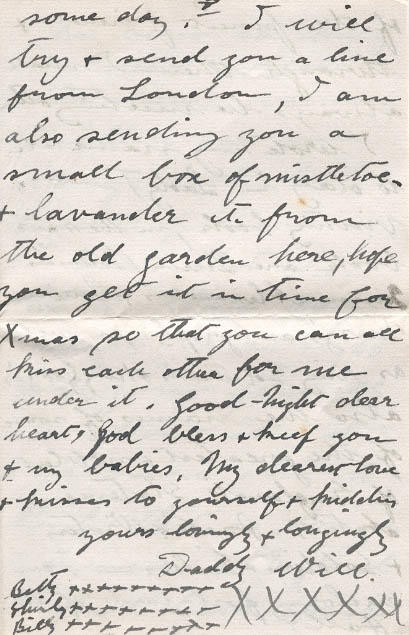 some day. I will
try + send you a line
from London, I am
also sending you a
small box of mistletoe
+ lavander it from
the old garden here, hope
you get it in time for
Xmas so that you can all
kiss each other for me
under it. Good-night dear
heart, God bless + keep you
+ my babies, My dearest love
+ kisses to yourself + kiddies
yours lovingly + longingly
Daddy Will.
Betty xxxxxxxxx
Shirly xxxxxxxxx XXXXXX
Billy xxxxxxxx